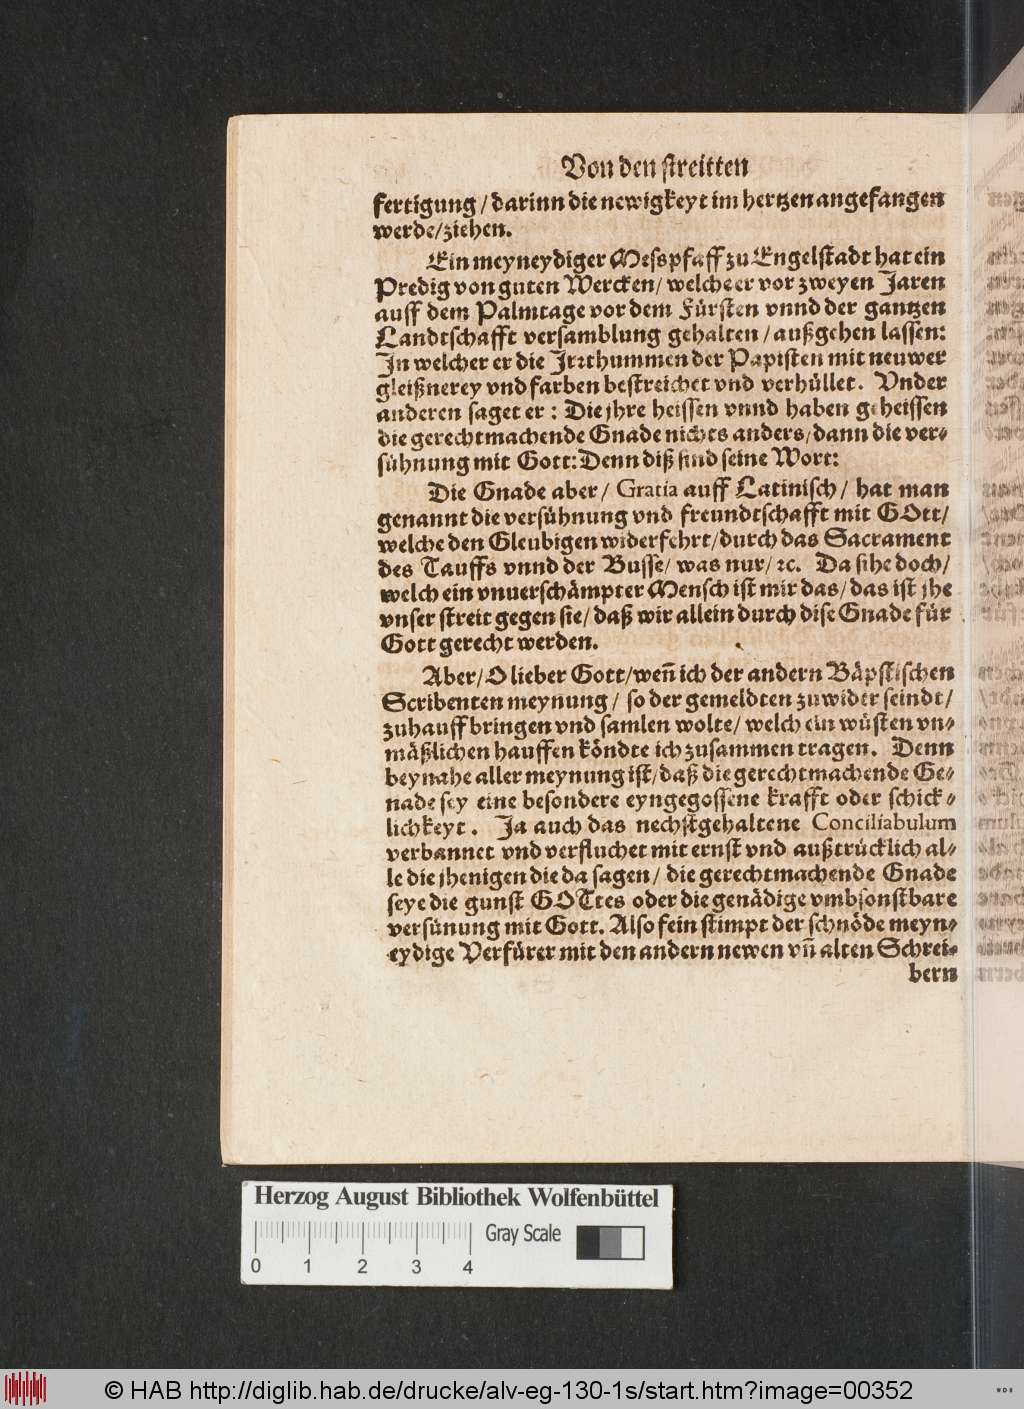 Von den streitten
fertigung / darinn die newigkeyt im hertzen angefangen
werde/ziehen.
Ein meyneydiger Messpfaff zu Engelstadt hat ein
Predig von guten Wercken/ welche er vor zweyen Jaren
auff dem Palmtage vor dem Fürsten vnnd der gantzen
Landtschafft versamblung gehalten / außgehen lassen:
In welcher er die Jrrthummen der Papisten mit neuwer
gleißnerey vnd farben bestreichet vnd verhüllet. Vnder
anderen saget er : Die jhre heissen vnnd haben geheissen
die gerechtmachende Gnade nichts anders/dann die ver-
sühnung mit Gott: Denn diß sind seine Wort:
Die Gnade aber/ Gratia auff Latinisch/ hat man
genannt die versühnung vnd freundtschafft mit GOtt/
welche den Gleubigen widerfehrt/durch das Sacrament
des Tauffs vnnd der Busse/ was nur/ ꝛc. Da sihe doch/
welch ein vnuerschämpter Mensch ist mir das/ das ist jhe
vnser streit gegen sie/ daß wir allein durch dise Gnade für
Gott gerecht werden.
Aber/ O lieber Gott/ weñ ich der andern Bäpstischen
Scribenten meynung / so der gemeldten zuwider seindt/
zuhauff bringen vnd samlen wolte/ welch ein wüsten vn-
mäßlichen hauffen köndte ich zusammen tragen. Denn
beynahe aller meynung ist/ daß die gerechtmachende Ge-
nade sey eine besondere eyngegossene krafft oder schick-
lichkeyt. Ja auch das nechstgehaltene Conciliabulum
verbannet vnd verfluchet mit ernst vnd außtrücklich al-
le die jhenigen die da sagen / die gerechtmachende Gnade
seye die gunst GOTtes oder die genädige vmbsonstbare
versünung mit Gott. Also fein stimpt der schnöde meyn-
eydige Verfürer mit den andern newen vñ alten Schrei-
bern
Herzog August Bibliothek Wolfenbüttel
Gray Scale
0 1 2 3 4
© HAB http://diglib.hab.de/drucke/alv-eg-130-1s/start.htm?image=00352